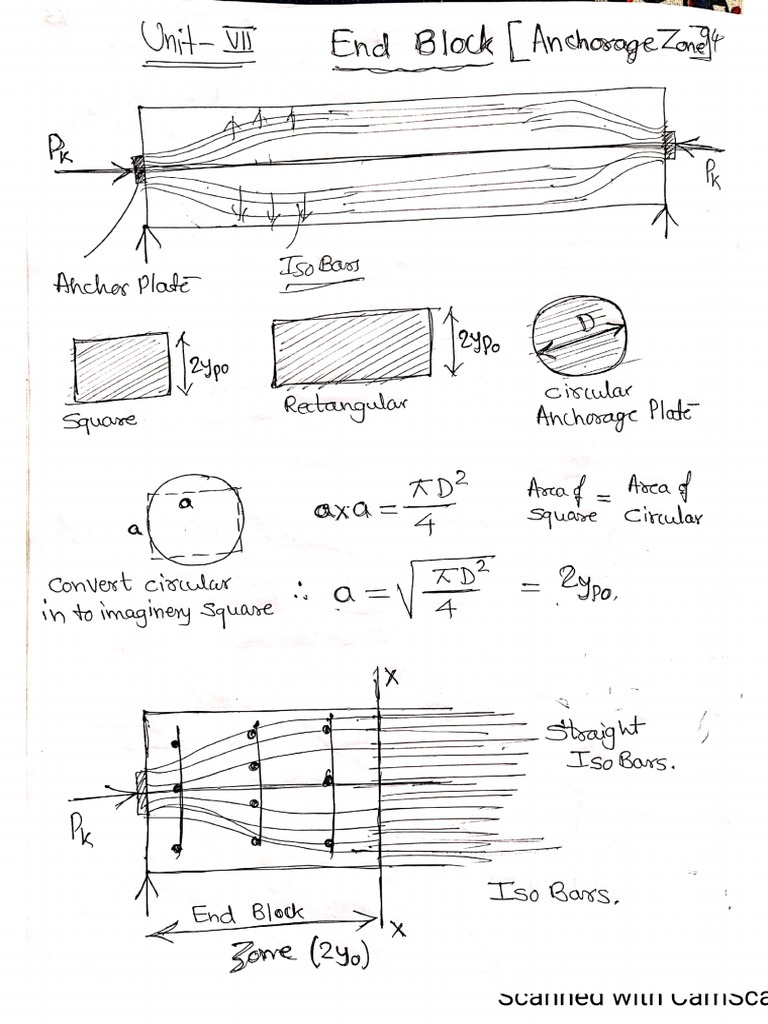 Unit-VII End Block [Anchorage Zone] 94
PK
PK
Anchor Plate
Iso Bars
2ypo
2ypo
D
Square
Rectangular
Circular
Anchorage Plate
a
a
axa = πD²/4
Area of Square = Area of Circular
Convert circular
in to imaginery Square
∴ a = √(πD²/4) = 2ypo.
X
Straight
Iso Bars.
PK
Iso Bars.
End Block
X
Zone (2yo)
Scanned with CamSca